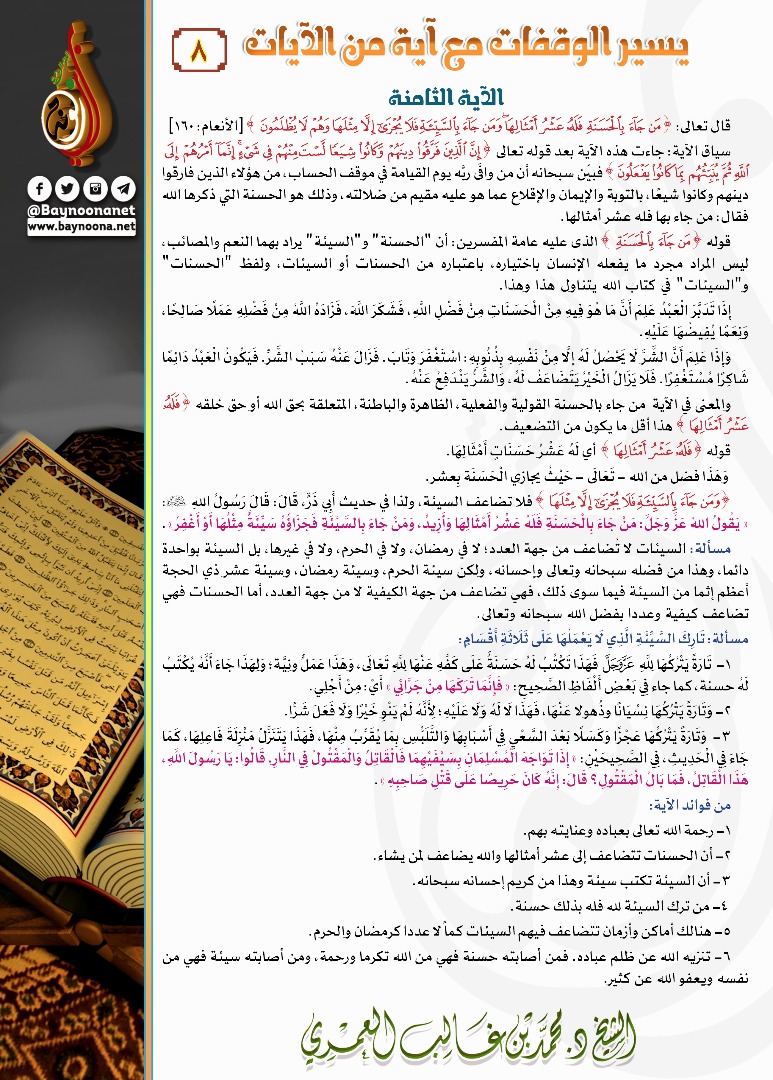 يسير الوقفات مع آية من الآيات
٨
الآية الثامنة
قال تعالى: ﴿ مَن جَآءَ بِٱلْحَسَنَةِ فَلَهُۥ عَشْرُ أَمْثَالِهَا ۖ وَمَن جَآءَ بِٱلسَّيِّئَةِ فَلَا يُجْزَىٰٓ إِلَّا مِثْلَهَا وَهُمْ لَا يُظْلَمُونَ ﴾ [الأنعام: ١٦٠]
سياق الآية: جاءت هذه الآية بعد قوله تعالى ﴿ إِنَّ ٱلَّذِينَ فَرَّقُوا۟ دِينَهُمْ وَكَانُوا۟ شِيَعًا لَّسْتَ مِنْهُمْ فِى شَىْءٍ ۚ إِنَّمَآ أَمْرُهُمْ إِلَى
ٱللَّهِ ثُمَّ يُنَبِّئُهُم بِمَا كَانُوا۟ يَفْعَلُونَ ﴾ فبيّن سبحانه أن من وافَى ربَّه يوم القيامة في موقف الحساب، من هؤلاء الذين فارقوا
دينهم وكانوا شيعًا، بالتوبة والإيمان والإقلاع عما هو عليه مقيم من ضلالته، وذلك هو الحسنة التي ذكرها الله
فقال: من جاء بها فله عشر أمثالها.
قوله ﴿ مَن جَآءَ بِٱلْحَسَنَةِ ﴾ الذى عليه عامة المفسرين: أن "الحسنة" و"السيئة" يراد بهما النعم والمصائب،
ليس المراد مجرد ما يفعله الإنسان باختياره، باعتباره من الحسنات أو السيئات، ولفظ "الحسنات"
و"السيئات" في كتاب الله يتناول هذا وهذا.
إِذَا تَدَبَّرَ الْعَبْدُ عَلِمَ أَنَّ مَا هُوَ فِيهِ مِنْ الْحَسَنَاتِ مِنْ فَضْلِ اللَّهِ، فَشَكَرَ اللَّهَ، فَزَادَهُ اللَّهُ مِنْ فَضْلِهِ عَمَلًا صَالِحًا،
وَنِعَمًا يُفِيضُهَا عَلَيْهِ.
وَإِذَا عَلِمَ أَنَّ الشَّرَّ لَا يَحْصُلُ لَهُ إلَّا مِنْ نَفْسِهِ بِذُنُوبِهِ: اسْتَغْفَرَ وَتَابَ. فَزَالَ عَنْهُ سَبَبُ الشَّرِّ. فَيَكُونُ الْعَبْدُ دَائِمًا
شَاكِرًا مُسْتَغْفِرًا. فَلَا يَزَالُ الْخَيْرُ يَتَضَاعَفُ لَهُ، وَالشَّرُّ يَنْدَفِعُ عَنْهُ.
والمعنى في الآية من جاء بالحسنة القولية والفعلية، الظاهرة والباطنة، المتعلقة بحق الله أو حق خلقه ﴿ فَلَهُۥ
عَشْرُ أَمْثَالِهَا ﴾ هذا أقل ما يكون من التضعيف.
قوله ﴿ فَلَهُۥ عَشْرُ أَمْثَالِهَا ﴾ أي لَهُ عَشْرُ حَسَنَاتٍ أَمْثَالِهَا.
وَهَذَا فضل من الله - تَعَالَى - حَيْثُ يجازي الْحَسَنَة بِعشر.
﴿ وَمَن جَآءَ بِٱلسَّيِّئَةِ فَلَا يُجْزَىٰٓ إِلَّا مِثْلَهَا ﴾ فلا تضاعف السيئة، ولذا في حديث أبي ذَرٍّ، قَالَ: قَالَ رَسُولُ الله ﷺ:
« يَقُولُ اللهُ عَزَّ وَجَلَّ: مَنْ جَاءَ بِالْحَسَنَةِ فَلَهُ عَشْرُ أَمْثَالِهَا وَأَزِيدُ، وَمَنْ جَاءَ بِالسَّيِّئَةِ فَجَزَاؤُهُ سَيِّئَةٌ مِثْلُهَا أَوْ أَغْفِرُ».
مسألة: السيئات لا تُضاعف من جهة العدد؛ لا في رمضان، ولا في الحرم، ولا في غيرها، بل السيئة بواحدة
دائما، وهذا من فضله سبحانه وتعالى وإحسانه، ولكن سيئة الحرم، وسيئة رمضان، وسيئة عشر ذي الحجة
أعظم إثما من السيئة فيما سوى ذلك، فهي تضاعف من جهة الكيفية لا من جهة العدد، أما الحسنات فهي
تضاعف كيفية وعددا بفضل الله سبحانه وتعالى.
مسألة: تَارِكَ السَّيِّئَةِ الَّذِي لَا يَعْمَلُهَا عَلَى ثَلَاثَةِ أَقْسَامٍ:
١- تَارَةً يَتْرُكُهَا لِلَّهِ عَزَّوَجَلَّ فَهَذَا تُكْتَبُ لَهُ حَسَنَةٌ عَلَى كَفِّهِ عَنْهَا لِلَّهِ تَعَالَى، وَهَذَا عَمَلٌ ونِيَّة؛ وَلِهَذَا جَاءَ أَنَّهُ يُكْتَبُ
لَهُ حسنة، كما جاء فِي بَعْضِ أَلْفَاظِ الصَّحِيحِ: « فَإِنَّمَا تَرَكَهَا مِنْ جَرَّائِي » أَيْ: مِنْ أَجْلِي.
٢- وَتَارَةً يَتْرُكُهَا نِسْيَانًا وذُهولا عَنْهَا، فَهَذَا لَا لَهُ وَلَا عَلَيْهِ؛ لِأَنَّهُ لَمْ يَنْوِ خَيْرًا وَلَا فَعَلَ شَرًّا.
٣- وَتَارَةً يَتْرُكُهَا عَجْزًا وَكَسَلًا بَعْدَ السَّعْيِ فِي أَسْبَابِهَا وَالتَّلَبُّسِ بِمَا يُقَرِّبُ مِنْهَا، فَهَذَا يَتَنَزَّلُ مَنْزِلَةَ فَاعِلِهَا، كَمَا
جَاءَ فِي الْحَدِيثِ، فِي الصَّحِيحَيْنِ: « إِذَا تَوَاجَهَ الْمُسْلِمَانِ بِسَيْفَيْهِمَا فَالْقَاتِلُ وَالْمَقْتُولُ فِي النَّارِ. قَالُوا: يَا رَسُولَ اللَّهِ،
هَذَا الْقَاتِلُ، فَمَا بَالُ الْمَقْتُولِ؟ قَالَ: إِنَّهُ كَانَ حَرِيصًا عَلَى قَتْلِ صَاحِبِهِ ».
من فوائد الآية:
١- رحمة الله تعالى بعباده وعنايته بهم.
٢- أن الحسنات تتضاعف إلى عشر أمثالها والله يضاعف لمن يشاء.
٣- أن السيئة تكتب سيئة وهذا من كريم إحسانه سبحانه.
٤- من ترك السيئة لله فله بذلك حسنة.
٥- هنالك أماكن وأزمان تتضاعف فيهم السيئات كماً لا عددا كرمضان والحرم.
٦- تنزيه الله عن ظلم عباده. فمن أصابته حسنة فهي من الله تكرما ورحمة، ومن أصابته سيئة فهي من
نفسه ويعفو الله عن كثير.
الشيخ د. محمد بن غالب العمري
@Baynoonanet
www.baynoona.net